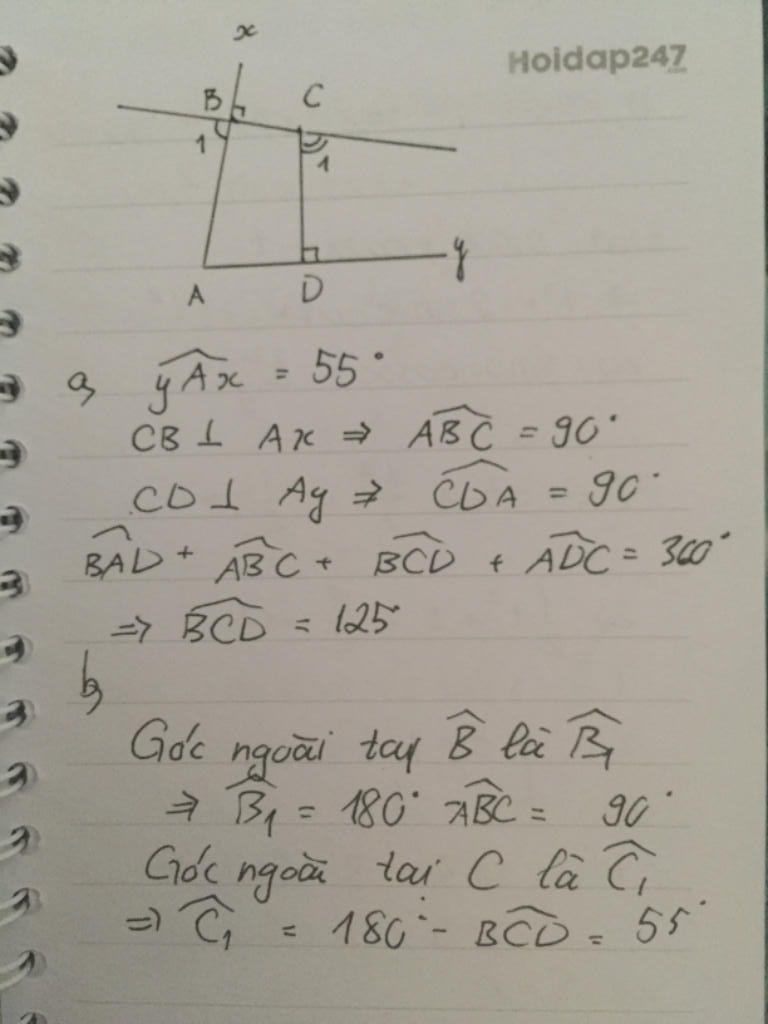 Hoidap247
.com
x
B
C
1
1
A
D
y
a, yAx = 55°
CB ⊥ Ax ⇒ ABC = 90°
CD ⊥ Ay ⇒ CDA = 90°
BAD + ABC + BCD + ADC = 360°
⇒ BCD = 125°
b,
Góc ngoài tại B là B₁
⇒ B₁ = 180° ABC = 90°
Góc ngoài tai C là C₁
⇒ C₁ = 180° - BCD = 55°